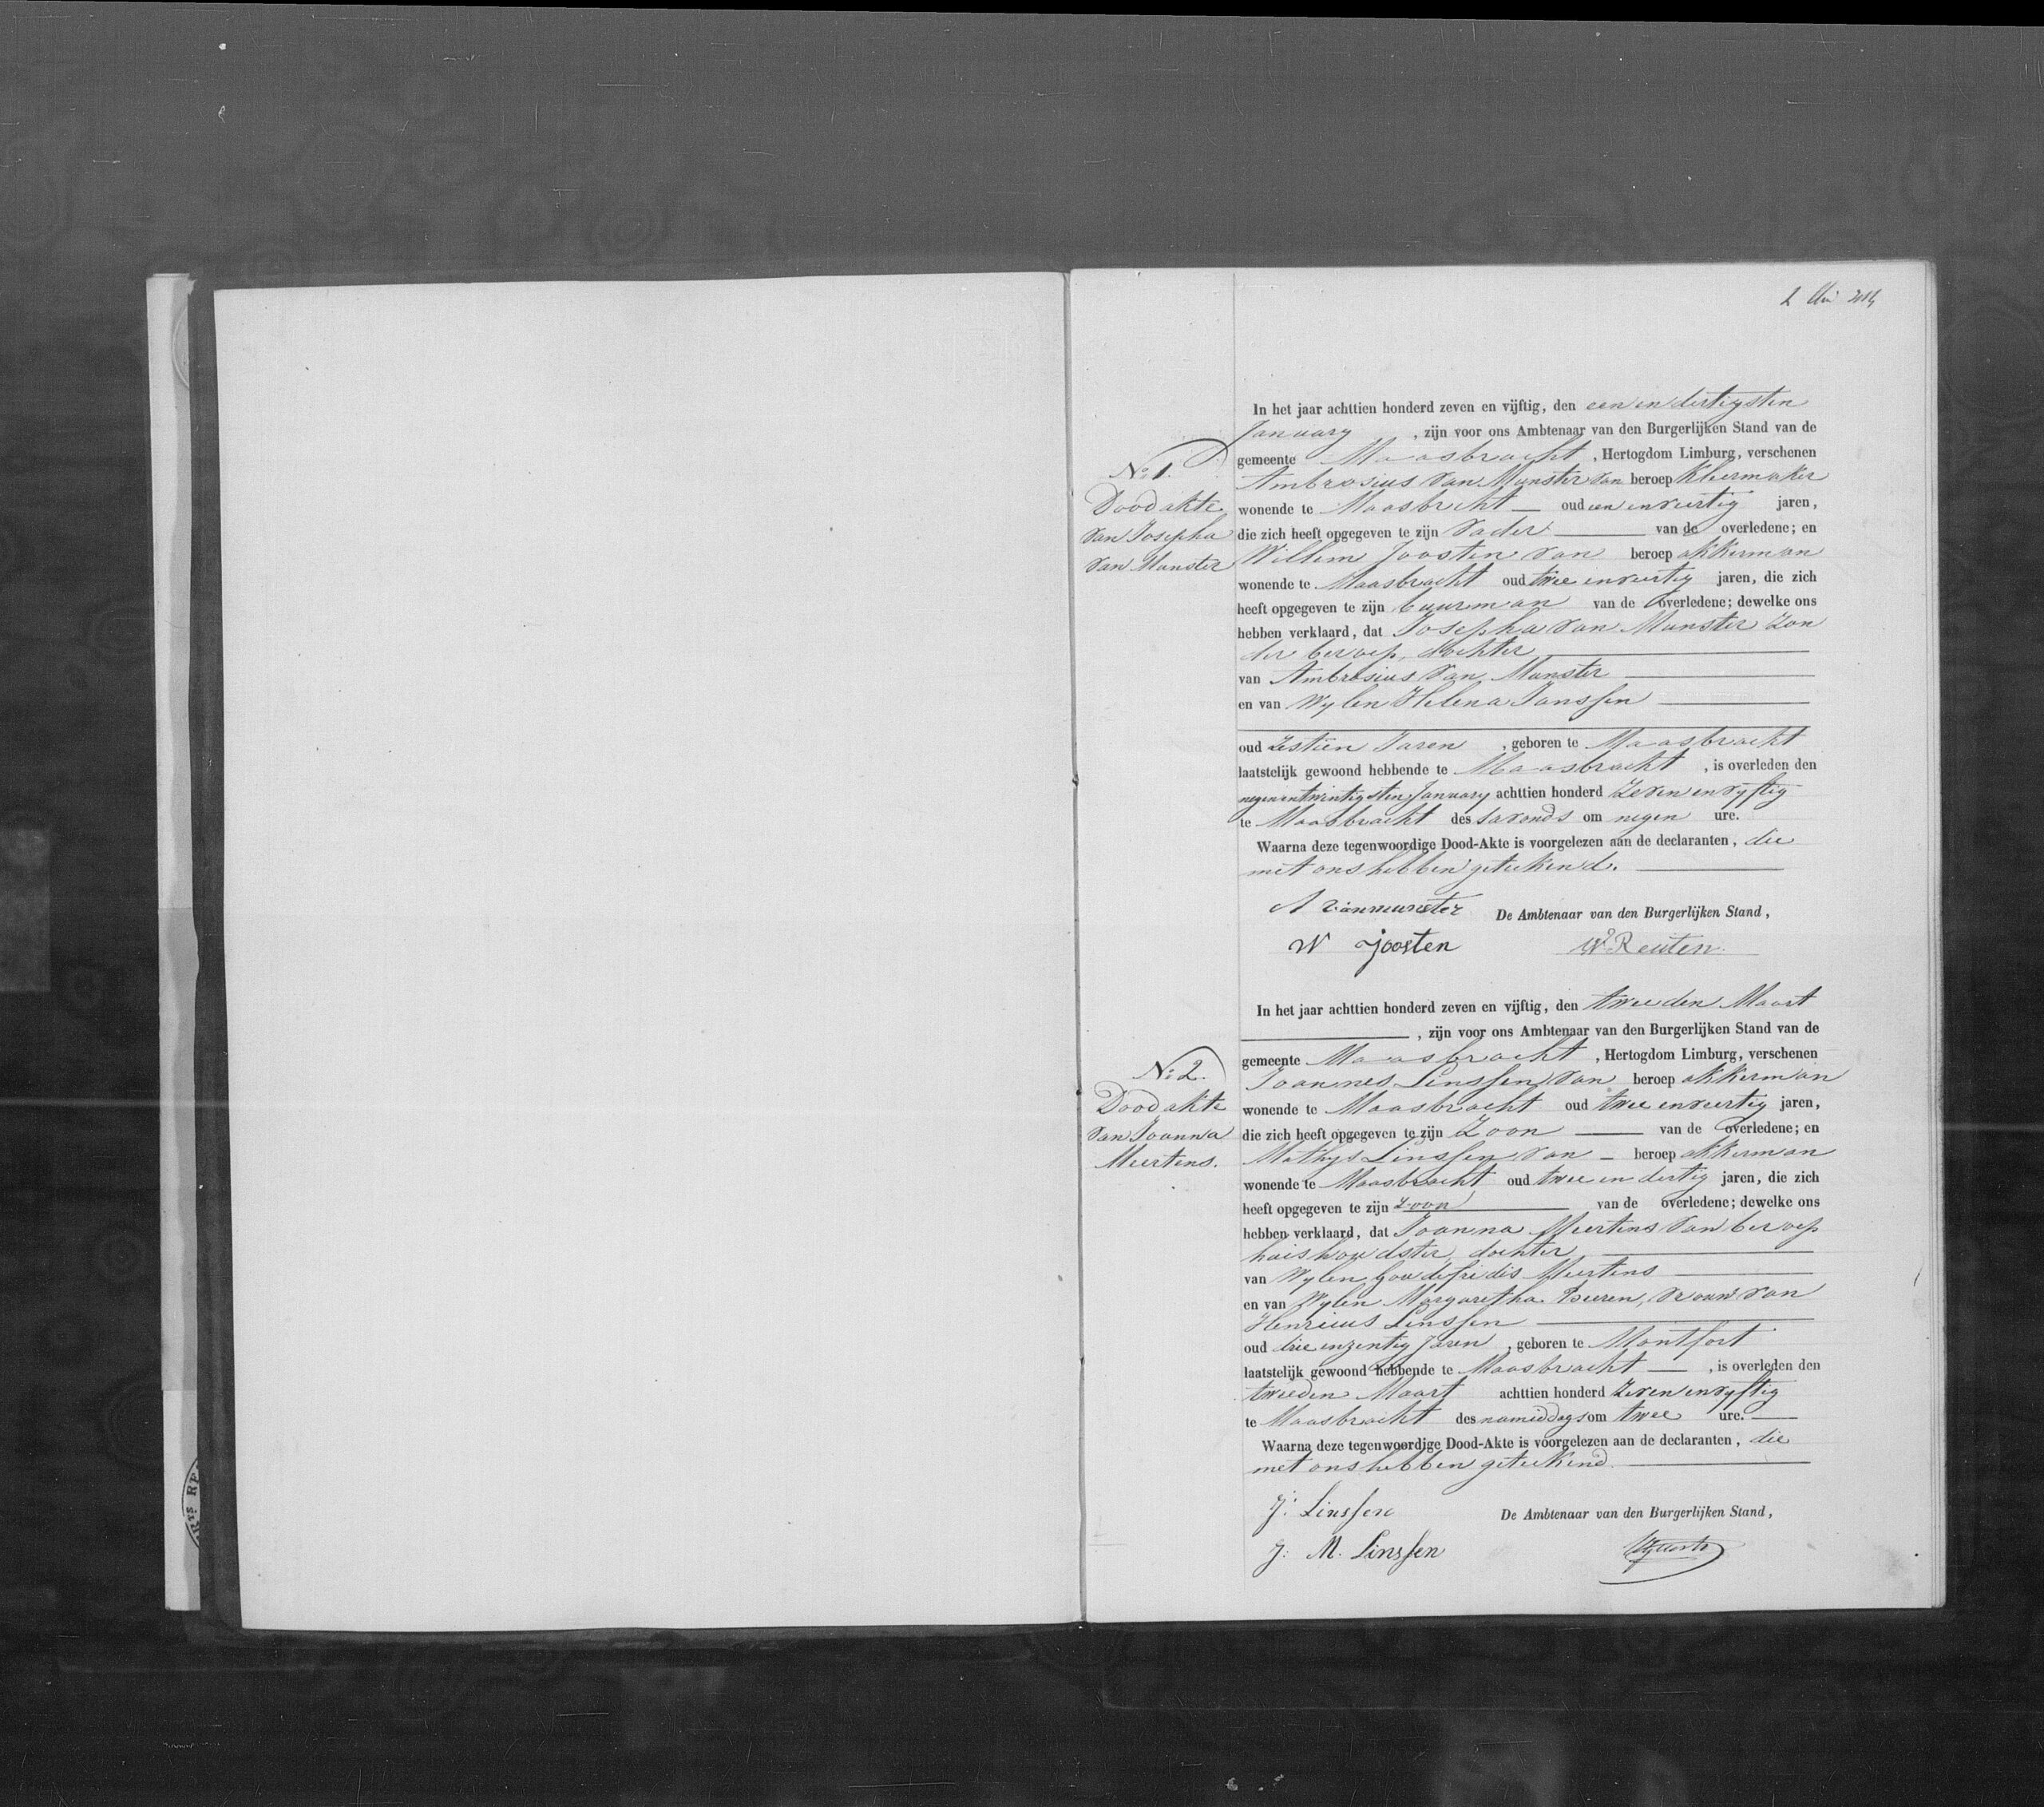 In het jaar achttien honderd zeven en vijftig, den een en dertigsten
January , zijn voor ons Ambtenaar van den Burgerlijken Stand van de
gemeente Maasbracht , Hertogdom Limburg, verschenen
Ambrosius van Munster van beroep kleermaker
wonende te Maasbracht oud een en veertig jaren,
die zich heeft opgegeven te zijn vader van de overledene; en
Willem Joosten van beroep akkerman
wonende te Maasbracht oud twee en veertig jaren, die zich
heeft opgegeven te zijn buurman van de overledene; dewelke ons
hebben verklaard, dat Josepha van Munster zon
der beroep, dochter
van Ambrosius van Munster
en van Wylen Helena Janssen
oud Zestien Jaren , geboren te Maasbracht
laatstelijk gewoond hebbende te Maasbracht , is overleden den
negenentwintigsten January achttien honderd Zeven en vyftig
te Maasbracht des savonds om negen ure.
Waarna deze tegenwoordige Dood-Akte is voorgelezen aan de declaranten, die
met ons hebben geteekend.
A vanmunster De Ambtenaar van den Burgerlijken Stand,
W Joosten W Reuten
No 1.
Doodakte
van Josepha
van Munster
In het jaar achttien honderd zeven en vijftig, den tweeden Maart
, zijn voor ons Ambtenaar van den Burgerlijken Stand van de
gemeente Maasbracht , Hertogdom Limburg, verschenen
Joannes Linssen van beroep akkerman
wonende te Maasbracht oud twee en veertig jaren,
die zich heeft opgegeven te zijn Zoon van de overledene; en
Mathys Linssen van beroep akkerman
wonende te Maasbracht oud twee en dertig jaren, die zich
heeft opgegeven te zijn Zoon van de overledene; dewelke ons
hebben verklaard, dat Joanna Meertens van beroep
huishoudster, dochter
van Wylen Goudefridis Meertens
en van Wylen Margaretha , vrouw van
Henricus Linssen
oud drie en zeventig Jaren , geboren te Montfort
laatstelijk gewoond hebbende te Maasbracht , is overleden den
tweeden Maart achttien honderd Zeven en vyftig
te Maasbracht des namiddags om twee ure.
Waarna deze tegenwoordige Dood-Akte is voorgelezen aan de declaranten, die
met ons hebben geteekend.
J. Linssen De Ambtenaar van den Burgerlijken Stand,
J. M. Linssen
No 2.
Doodakte
van Joanna
Meertens.